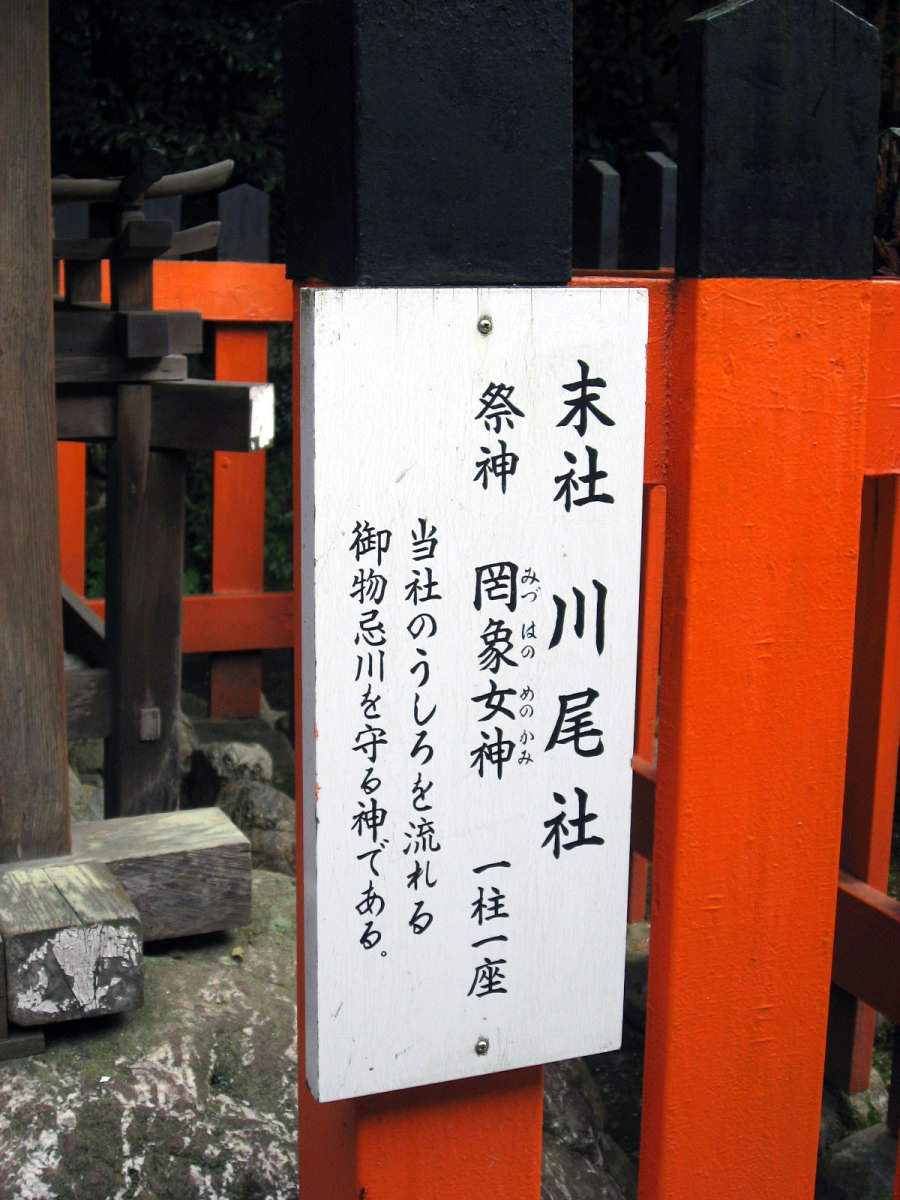 末社 川尾社
祭神 罔象女神 一柱一座
みづ はの めの かみ
当社のうしろを流れる
御物忌川を守る神である。